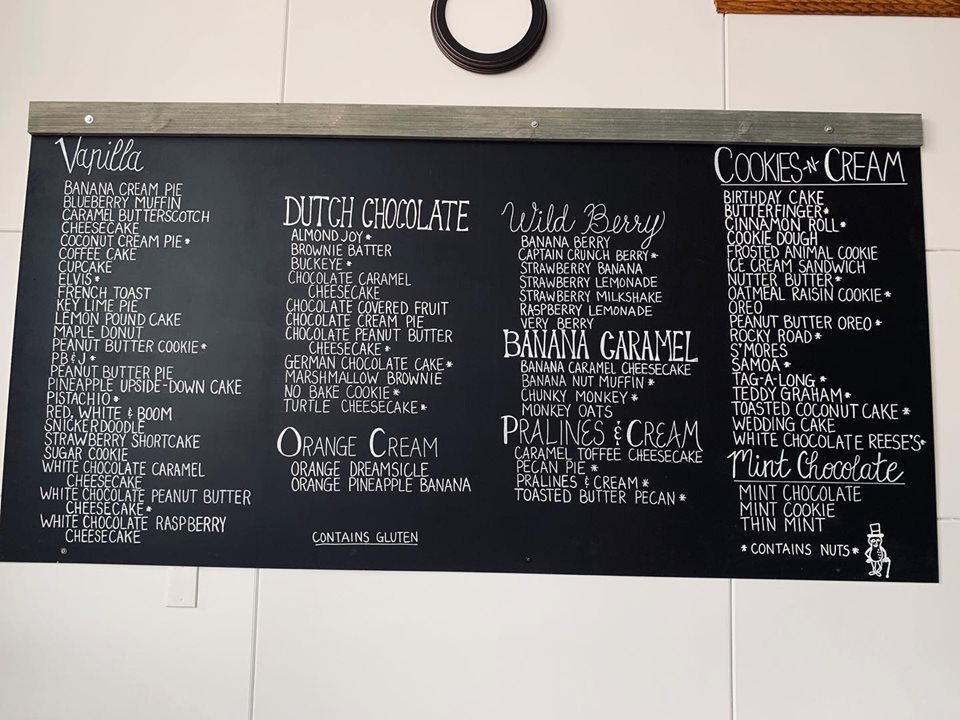 Vanilla
BANANA CREAM PIE
BLUEBERRY MUFFIN
CARAMEL BUTTERSCOTCH
CHEESECAKE
COCONUT CREAM PIE *
COFFEE CAKE
CUPCAKE
ELVIS *
FRENCH TOAST
KEY LIME PIE
LEMON POUND CAKE
MAPLE DONUT
PEANUT BUTTER COOKIE *
PB & J *
PEANUT BUTTER PIE
PINEAPPLE UPSIDE-DOWN CAKE
PISTACHIO *
RED, WHITE & BOOM
SNICKERDOODLE
STRAWBERRY SHORTCAKE
SUGAR COOKIE
WHITE CHOCOLATE CARAMEL
CHEESECAKE
WHITE CHOCOLATE PEANUT BUTTER
CHEESECAKE *
WHITE CHOCOLATE RASPBERRY
CHEESECAKE
DUTCH CHOCOLATE
ALMOND JOY *
BROWNIE BATTER
BUCKEYE *
CHOCOLATE CARAMEL
CHEESECAKE
CHOCOLATE COVERED FRUIT
CHOCOLATE CREAM PIE
CHOCOLATE PEANUT BUTTER
CHEESECAKE *
GERMAN CHOCOLATE CAKE *
MARSHMALLOW BROWNIE
NO BAKE COOKIE *
TURTLE CHEESECAKE *
ORANGE CREAM
ORANGE DREAMSICLE
ORANGE PINEAPPLE BANANA
CONTAINS GLUTEN
Wild Berry
BANANA BERRY
CAPTAIN CRUNCH BERRY *
STRAWBERRY BANANA
STRAWBERRY LEMONADE
STRAWBERRY MILKSHAKE
RASPBERRY LEMONADE
VERY BERRY
BANANA CARAMEL
BANANA CARAMEL CHEESECAKE
BANANA NUT MUFFIN *
CHUNKY MONKEY *
MONKEY OATS
PRALINES & CREAM
CARAMEL TOFFEE CHEESECAKE
PECAN PIE *
PRALINES & CREAM *
TOASTED BUTTER PECAN *
COOKIES-N-CREAM
BIRTHDAY CAKE
BUTTERFINGER *
CINNAMON ROLL *
COOKIE DOUGH
FROSTED ANIMAL COOKIE
ICE CREAM SANDWICH
NUTTER BUTTER *
OATMEAL RAISIN COOKIE *
OREO
PEANUT BUTTER OREO *
ROCKY ROAD *
S'MORES
SAMOA *
TAG-A-LONG *
TEDDY GRAHAM *
TOASTED COCONUT CAKE *
WEDDING CAKE
WHITE CHOCOLATE REESE'S *
Mint Chocolate
MINT CHOCOLATE
MINT COOKIE
THIN MINT
* CONTAINS NUTS *